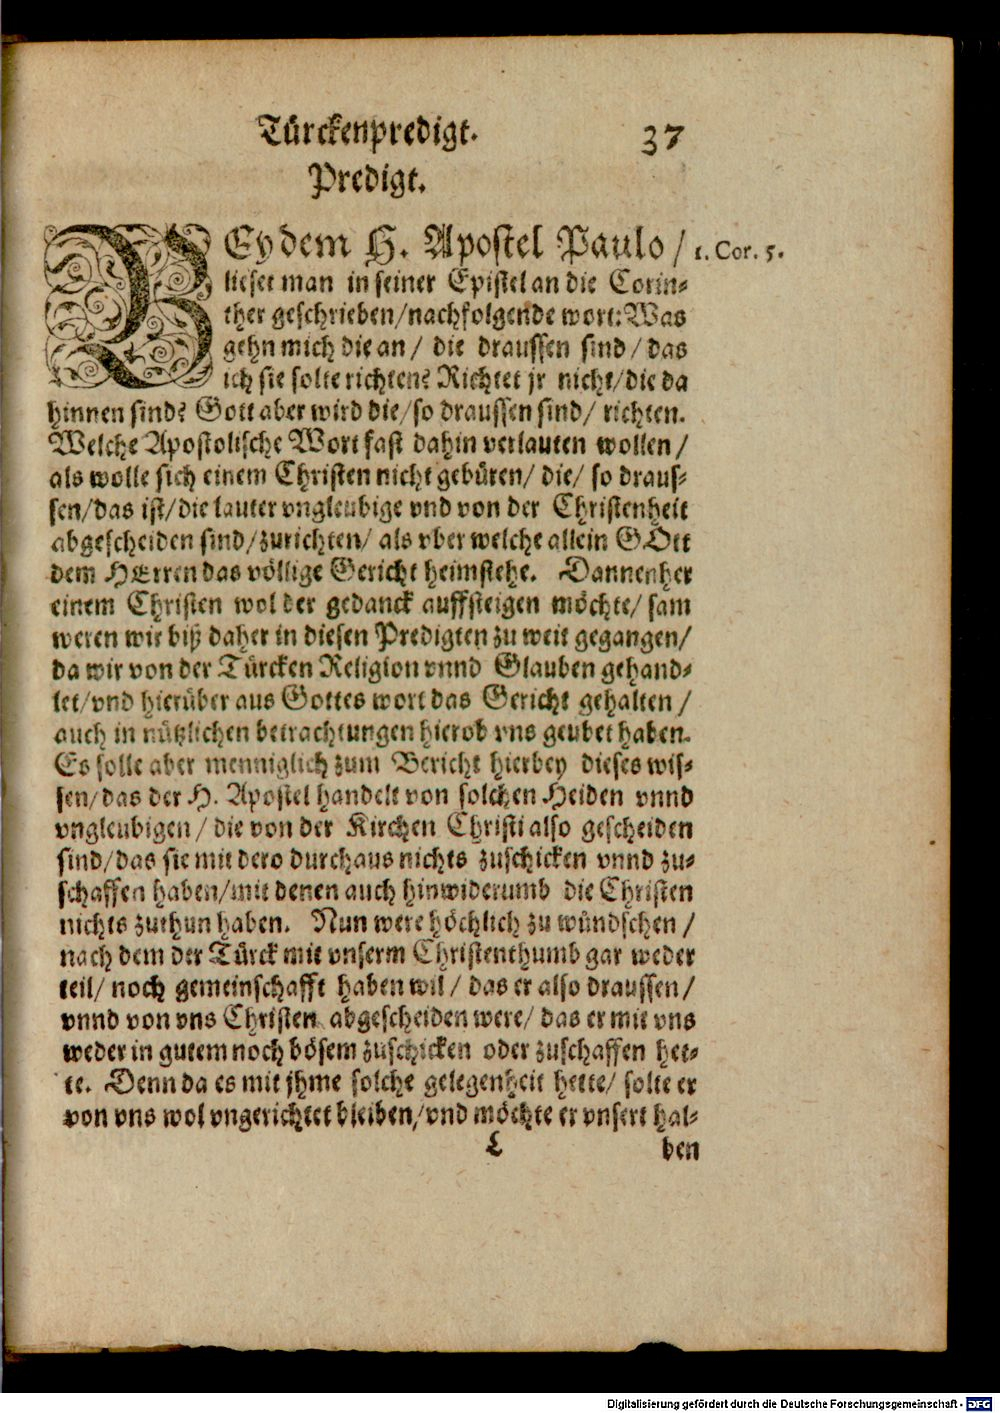 Türckenpredigt. 37
Predigt.
BEy dem H. Apostel Paulo / 1. Cor. 5.
lieset man in seiner Epistel an die Corin-
ther geschrieben/nachfolgende wort: Was
gehn mich die an / die draussen sind / das
ich sie solte richten? Richtet jr nicht/die da
hinnen sind? Gott aber wird die/so draussen sind/ richten.
Welche Apostolische Wort fast dahin verlauten wollen /
als wolle sich einem Christen nicht gebüren/ die/ so draus-
sen/das ist/die lauter vngleubige vnd von der Christenheit
abgescheiden sind/zurichten/ als vber welche allein GOtt
dem HErren das völlige Gericht heimstehe. Dannenher
einem Christen wol der gedanck auffsteigen möchte/ sam
weren wir biß daher in diesen Predigten zu weit gegangen/
da wir von der Türcken Religion vnnd Glauben gehand-
let/vnd hierüber aus Gottes wort das Gericht gehalten /
auch in nützlichen betrachtungen hierob vns geubet haben.
Es solle aber menniglich zum Bericht hierbey dieses wis-
sen/das der H. Apostel handelt von solchen Heiden vnnd
vngleubigen / die von der Kirchen Christi also gescheiden
sind/das sie mit dero durchaus nichts zuschicken vnnd zu-
schaffen haben/mit denen auch hinwiderumb die Christen
nichts zuthun haben. Nun were höchlich zu wündschen /
nach dem der Türck mit vnserm Christenthumb gar weder
teil/ noch gemeinschafft haben wil / das er also draussen/
vnnd von vns Christen abgescheiden were/ das er mit vns
weder in gutem noch bösem zuschicken oder zuschaffen het-
te. Denn da es mit jhme solche gelegenheit hette/ solte er
von vns wol vngerichtet bleiben/vnd möchte er vnsert hal-
L ben
Digitalisierung gefördert durch die Deutsche Forschungsgemeinschaft - DFG